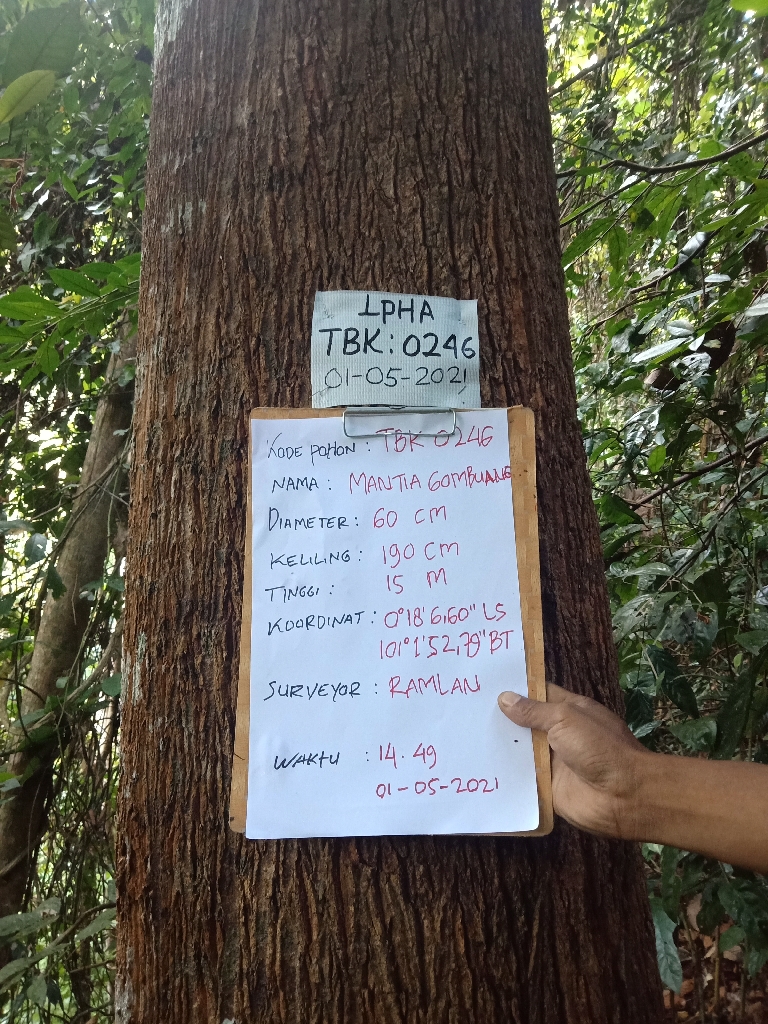 LPHA
TBK: 0246
01-05-2021
KODE POHON : TBK 0246
NAMA : MANTIA GOMBUANG
DIAMETER: 60 CM
KELILING : 190 CM
TINGGI : 15 M
KOORDINAT : 0°18'6,60" LS
101°1'52,79" BT
SURVEYOR : RAMLAN
WAKTU : 14.49
01-05-2021